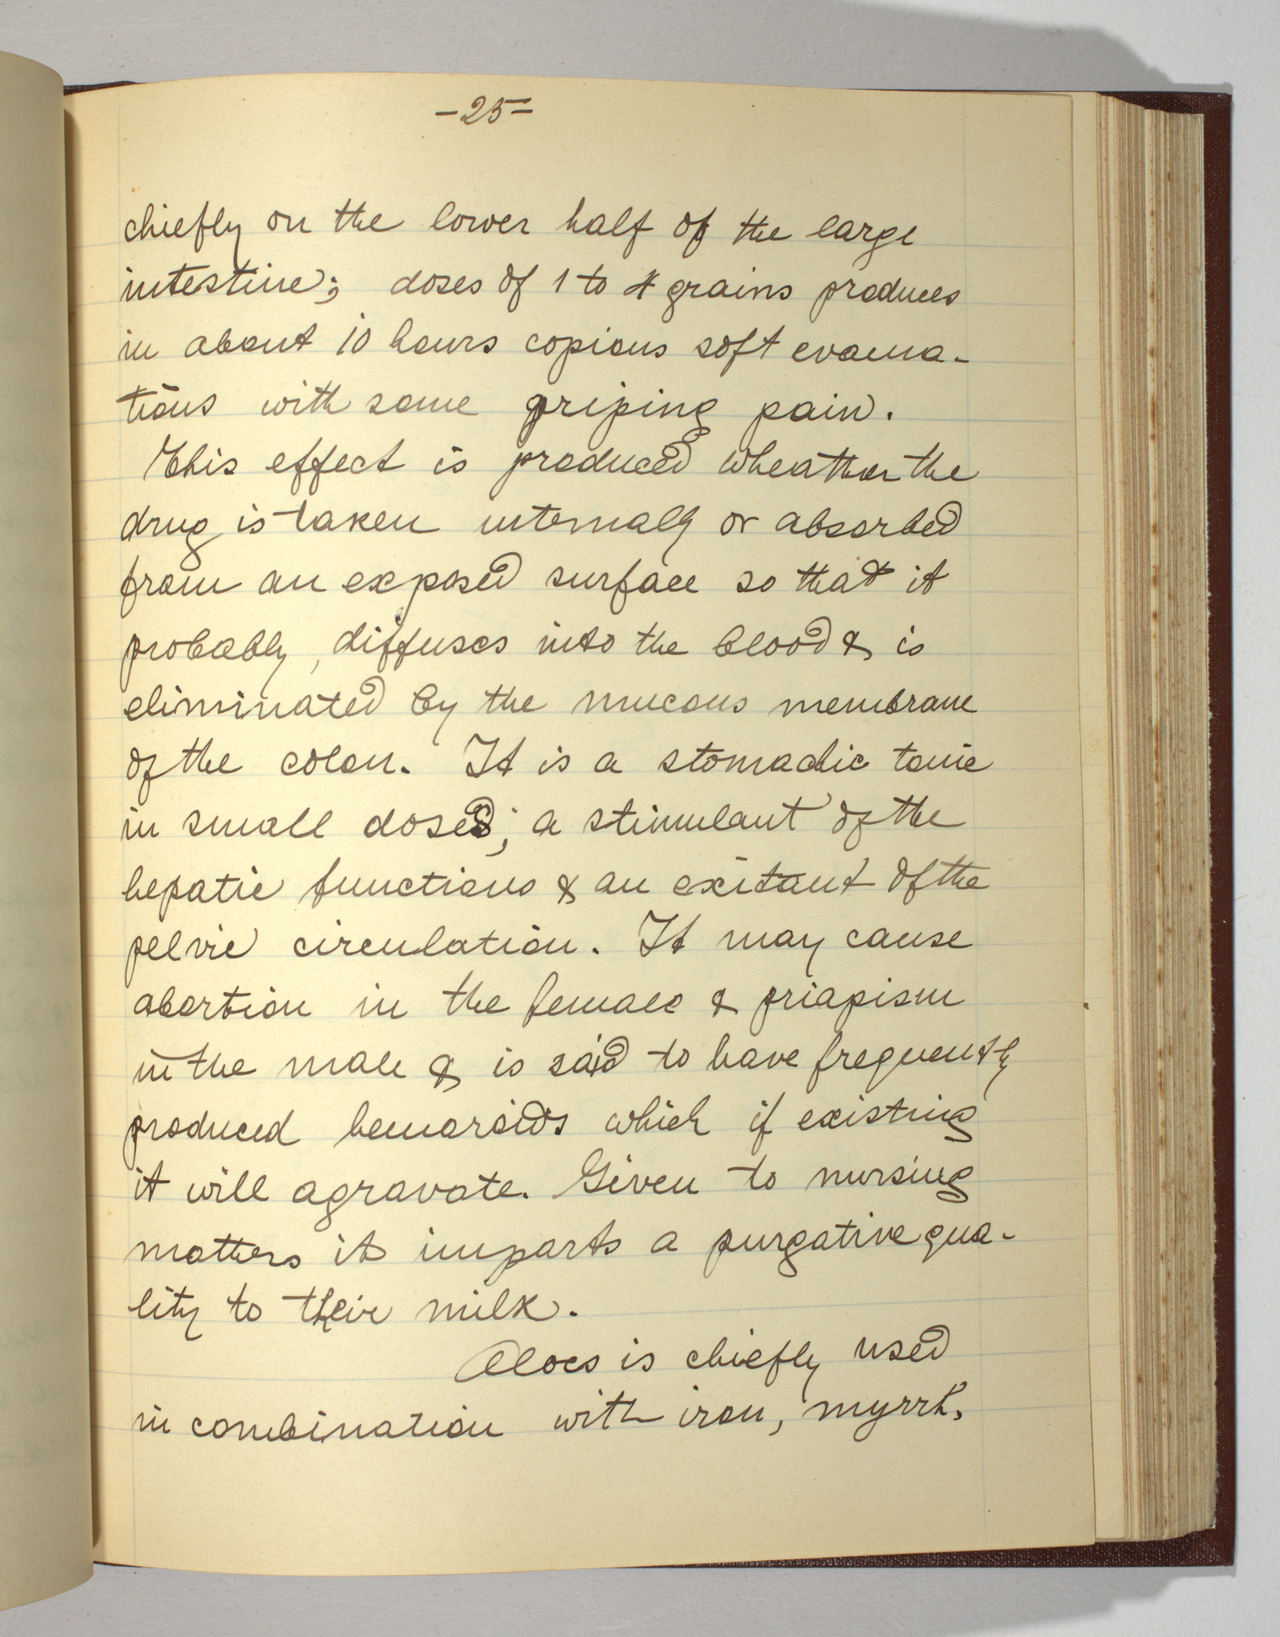 -25-
chiefly on the lower half of the large
intestine; doses of 1 to 4 grains produces
in about 10 hours copious soft evacua-
tions with some griping pain.
This effect is produced wheather the
drug is taken internally or absorbed
from an exposed surface so that it
probably, diffuses into the blood & is
eliminated by the mucous membrane
of the colon. It is a stomachic tonic
in small doses; a stimulant of the
hepatic functions & an exitant of the
pelvic circulation. It may cause
abortion in the female & priapism
in the male & is said to have frequently
produced hemaroids which if existing
it will agravate. Given to nursing
mothers it imparts a purgative qua-
lity to their milk.
Aloes is chiefly used
in combination with iron, myrrh,